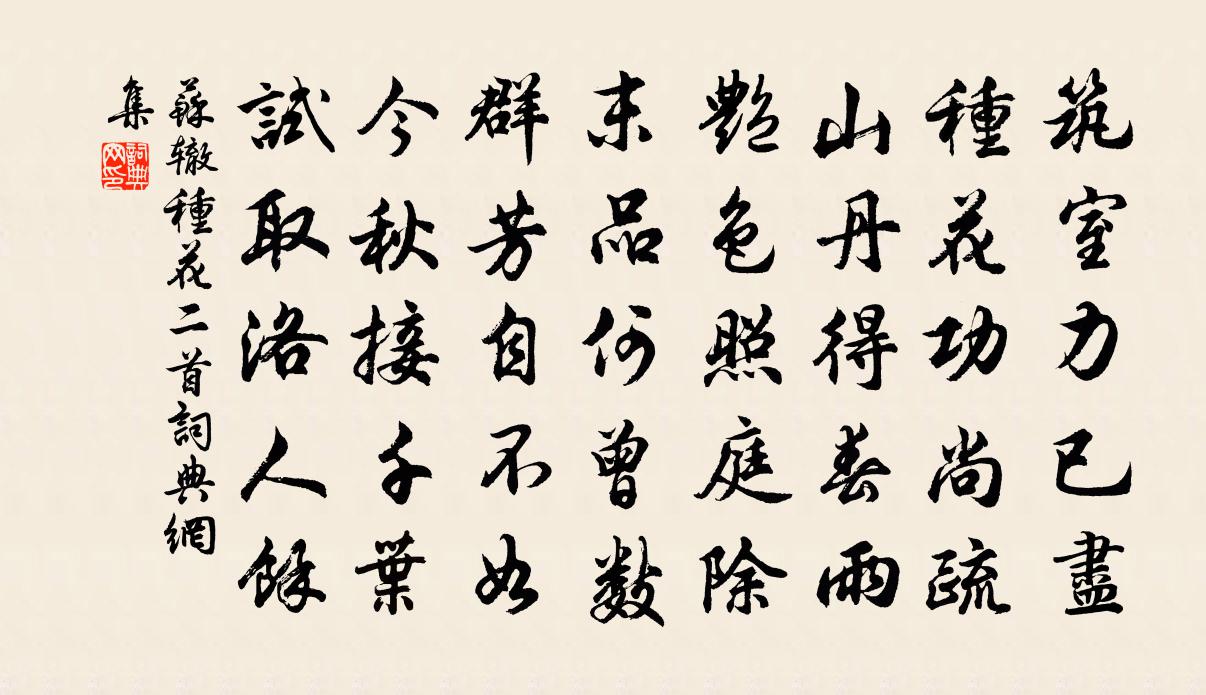 筑室力已盡
種花功尚疏
山丹得春雨
艷色照庭除
末品何曾數
群芳自不如
今秋接千葉
試取洛人餘
蘇辙種花二首詞典網
集
詞典网印